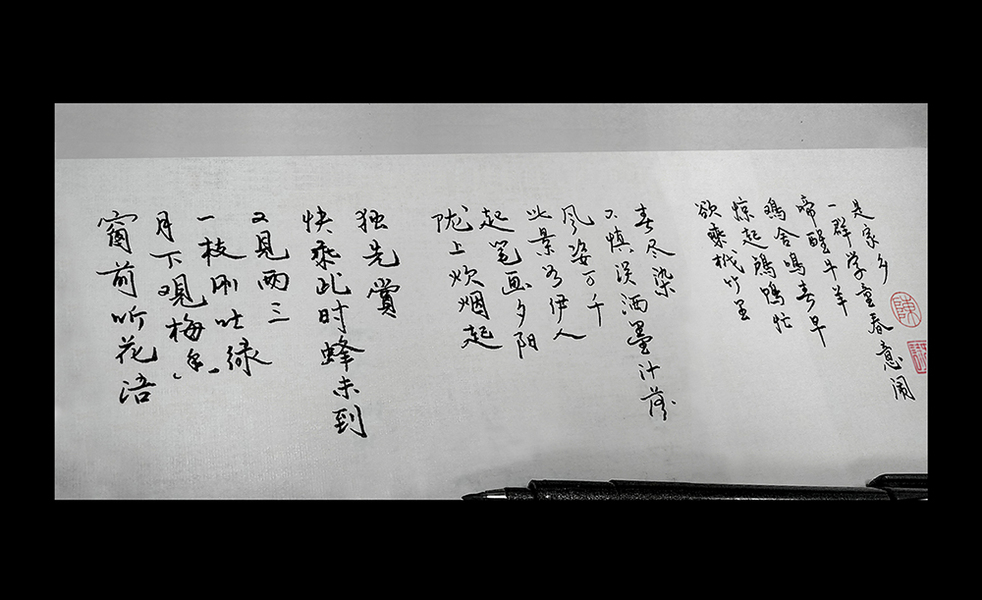 窗前听花语
月下观梅香
一枝刚吐绿
又见两三
快乘此时蜂未到
独先赏
陇上炊烟起
起笔画夕阳
此景为伊人
风姿万千
不慎误洒墨汁落
春尽染
欲乘
惊起鹅鸭忙
鸡舍鸣春早
啼醒牛羊
一群学童春意闹
是家乡
陳